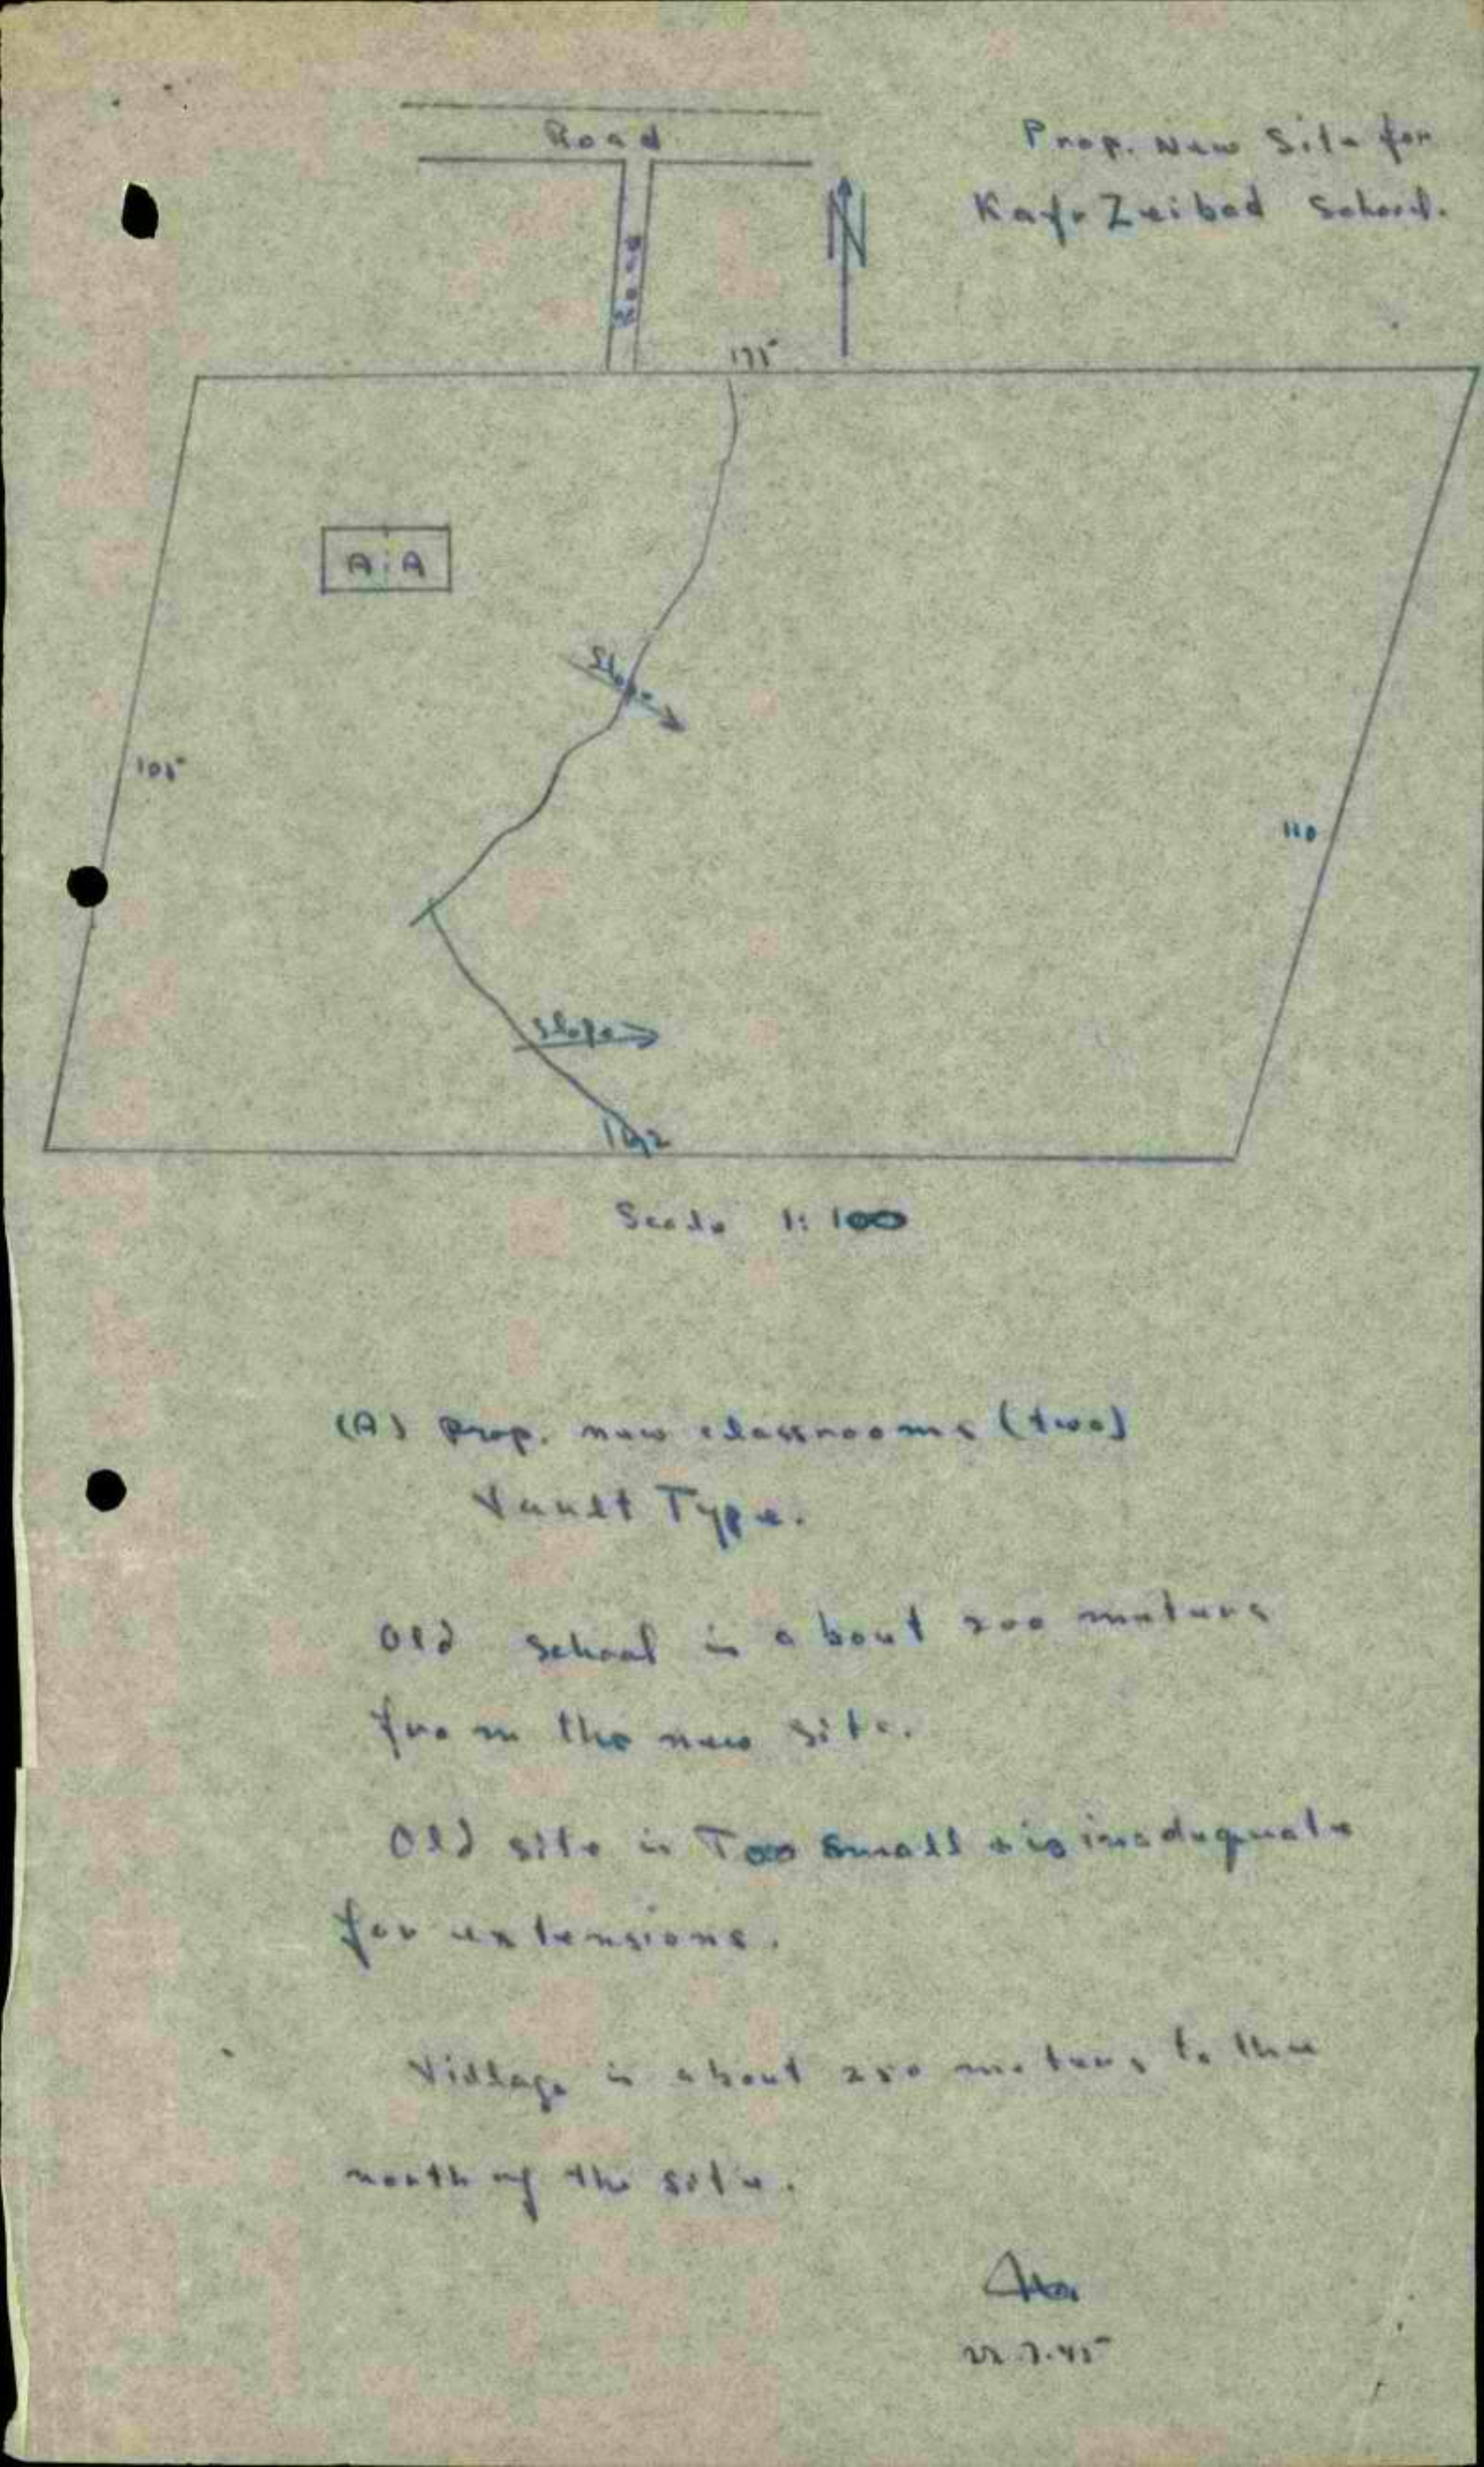 Road
Prop. New Site for
Kafr Zeibad School.
Road
N
175
A A
Slope
105
110
Slope
162
Scale 1:100
(A) Prop. new classrooms (two)
Vault Type.
Old school is about 200 meters
from the new site.
Old site is Too small & is inadequate
for extensions.
Village is about 250 meters to the
north of the site.
22.7.45